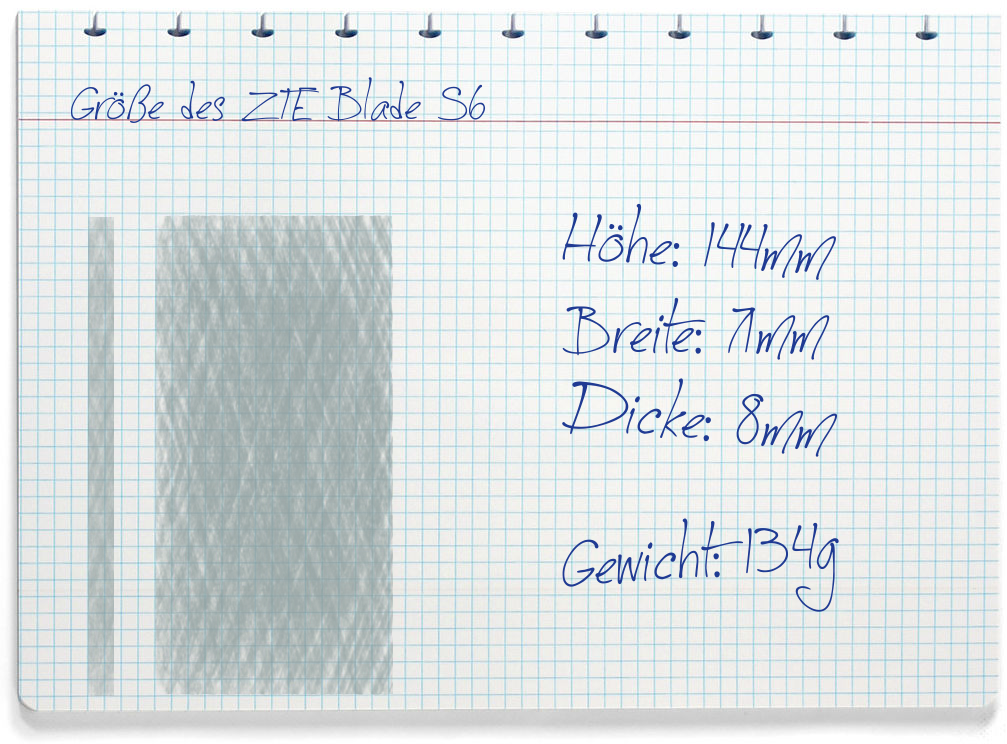 Größe des ZTE Blade S6
Höhe: 144mm
Breite: 71mm
Dicke: 8mm
Gewicht: 134g